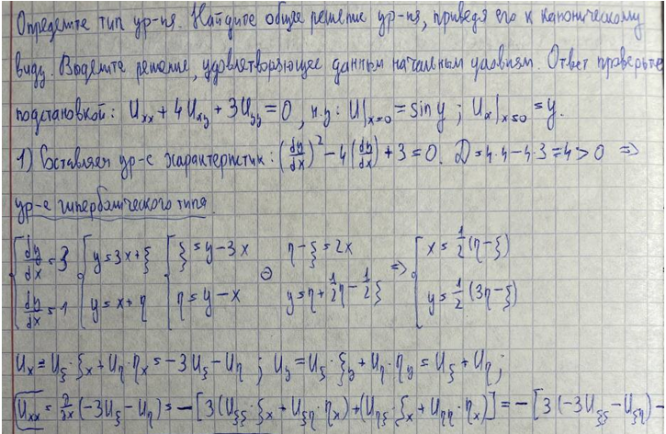 Определите тип ур-ия. Найдите общее решение ур-ия, приведя его к каноническому
виду. Выделите решение, удовлетворяющее данным начальным условиям. Ответ проверьте
подстановкой: Uxx + 4Uxy + 3Uyy = 0, н.у: U|x=0 = sin y ; Ux|x=0 = y.
1) Составляем ур-е характеристик: (dy/dx)² − 4(dy/dx) + 3 = 0. D = 4·4 − 4·3 = 4 > 0 ⇒
ур-е гиперболического типа.
[dy/dx = 3 [y = 3x + ξ [ξ = y − 3x η − ξ = 2x [x = ½(η − ξ)
[dy/dx = 1 [y = x + η [η = y − x ⊖ y = η + ½η − ½ξ ⇒ [y = ½(3η − ξ)
Ux = Uξ·ξx + Uη·ηx = −3Uξ − Uη ; Uy = Uξ·ξy + Uη·ηy = Uξ + Uη ;
Uxx = ∂/∂x (−3Uξ − Uη) = −[3(Uξξ·ξx + Uξη·ηx) + (Uηξ·ξx + Uηη·ηx)] = −[3(−3Uξξ − Uξη) −